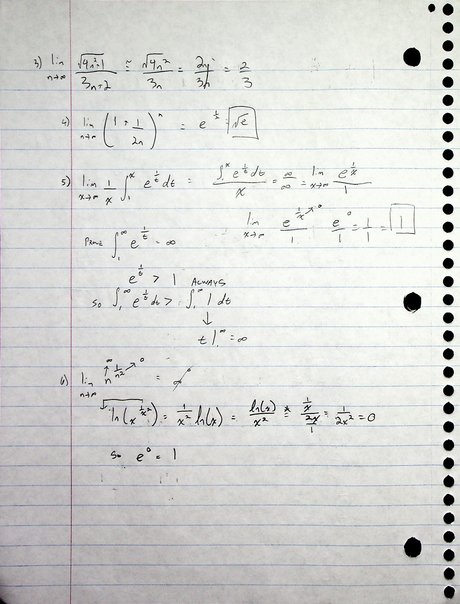 3) lim n→∞ √(4n²+1) / (3n+2) ≅ √(4n²) / 3n = 2n / 3n = 2/3
4) lim n→∞ (1 + 1/2n)^n = e^(1/2) = √e
5) lim x→∞ 1/x ∫₁^x e^(1/t) dt = ∫₁^x e^(1/t) dt / x = ∞/∞ = lim x→∞ e^(1/x) / 1
lim x→∞ e^(1/x →0) / 1 = e^0 / 1 = 1/1 = 1
Prove ∫₁^∞ e^(1/t) = ∞
e^(1/t) > 1 ALWAYS
so ∫₁^∞ e^(1/t) dt > ∫₁^∞ 1 dt
↓
t |₁^∞ = ∞
6) lim n→∞ n^(1/n²) = ∞^0
ln(x^(1/x²)) = 1/x² ln(x) = ln(x)/x² ≅ (1/x) / (2x/1) = 1/2x² = 0
so e^0 = 1